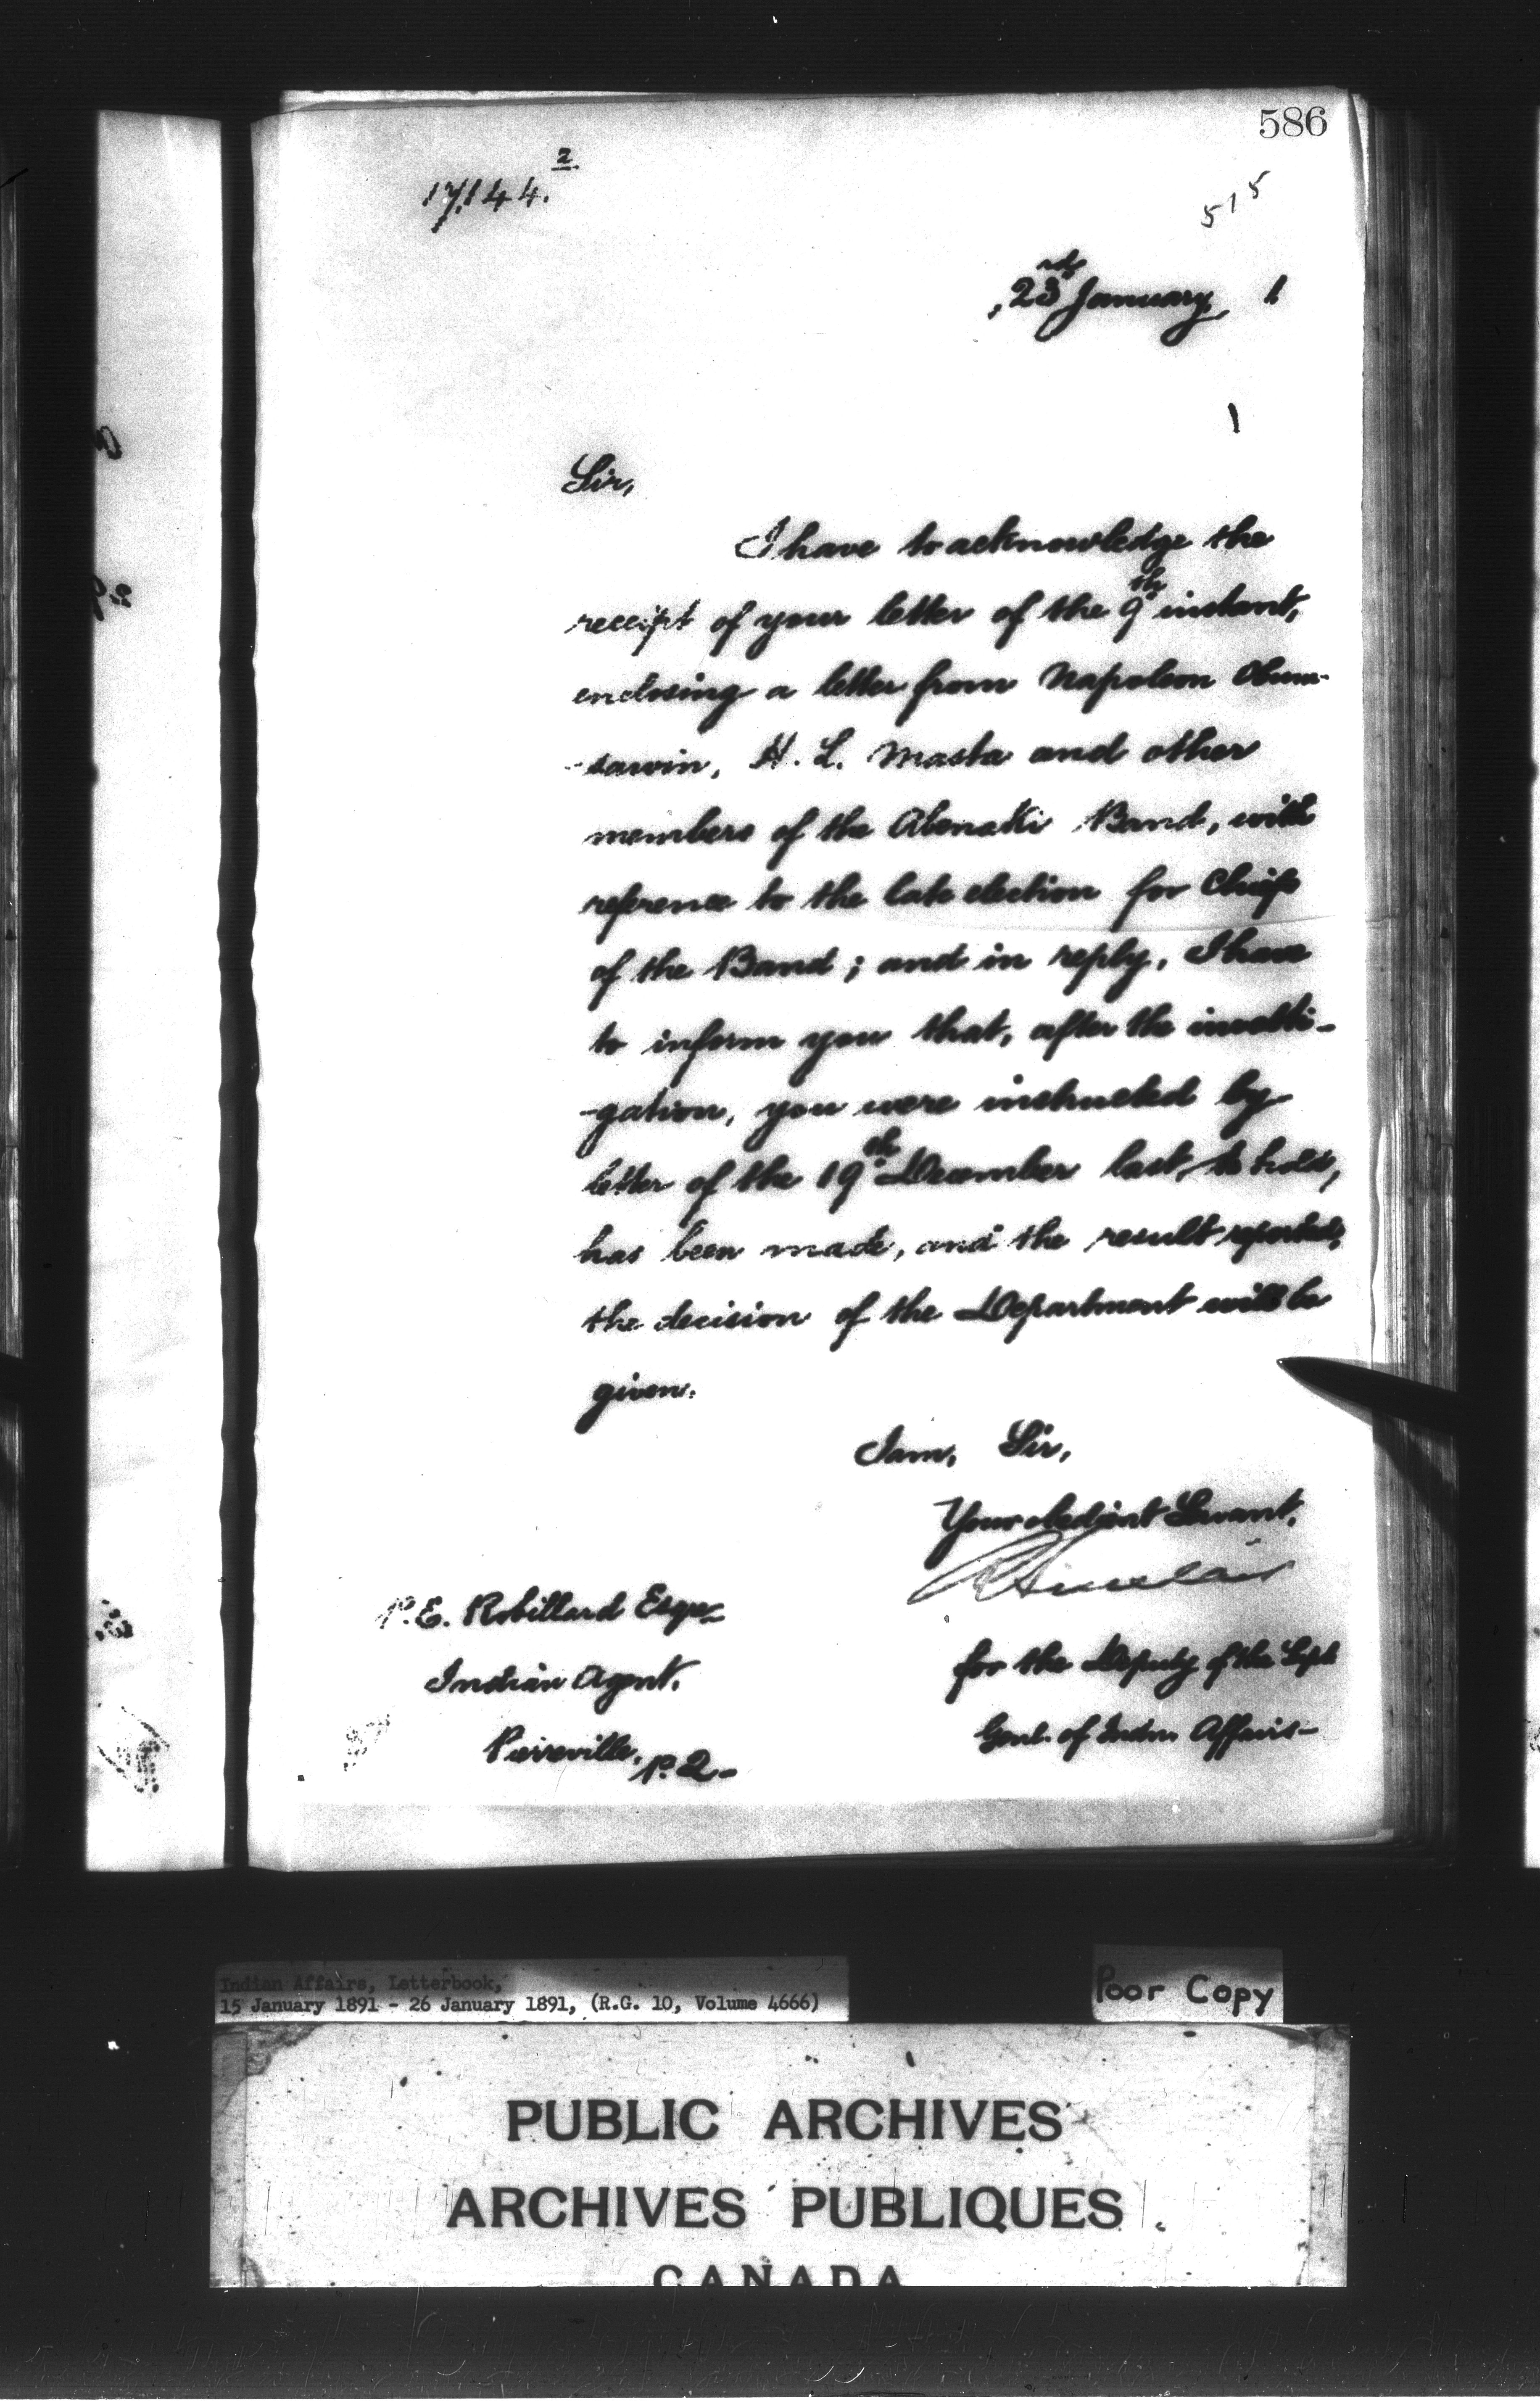 586
2
17,144.
515
23rd January, 1
Sir,
I have to acknowledge the
receipt of your letter of the 9th instant,
enclosing a letter from Napoleon Obum-
-sawin, H. L. Masta and other
members of the Abenaki Band, with
reference to the late election for Chiefs
of the Band; and in reply, I have
to inform you that, after the investi-
-gation, you were instructed by
letter of the 19th December last, to hold,
has been made, and the result reported,
the decision of the Department will be
given.
I am, Sir,
Your obedient Servant,
R Sinclair
for the Deputy of the Supt
Genl. of Indn. Affairs-
P. E. Robillard Esqre
Indian Agent,
Pierreville, P.Q-
Indian Affairs, Letterbook,
15 January 1891 - 26 January 1891, (R.G. 10, Volume 4666)
Poor Copy
PUBLIC ARCHIVES
ARCHIVES PUBLIQUES
CANADA